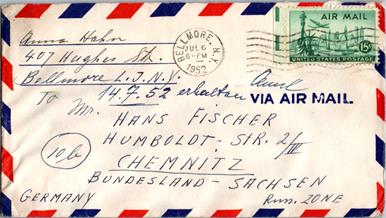 Anna Hahn
407 Hughes Str.
Bellmore L.I.N.Y.
BELLMORE, N.Y.
JUL 6
6-PM
1952
AIR MAIL
15¢
UNITED STATES POSTAGE
14.7.52 erhalten
VIA AIR MAIL
To Mr.
HANS FISCHER
HUMBOLDT-STR. 2/III
10b
CHEMNITZ
BUNDESLAND-SACHSEN
GERMANY
Russ. ZONE